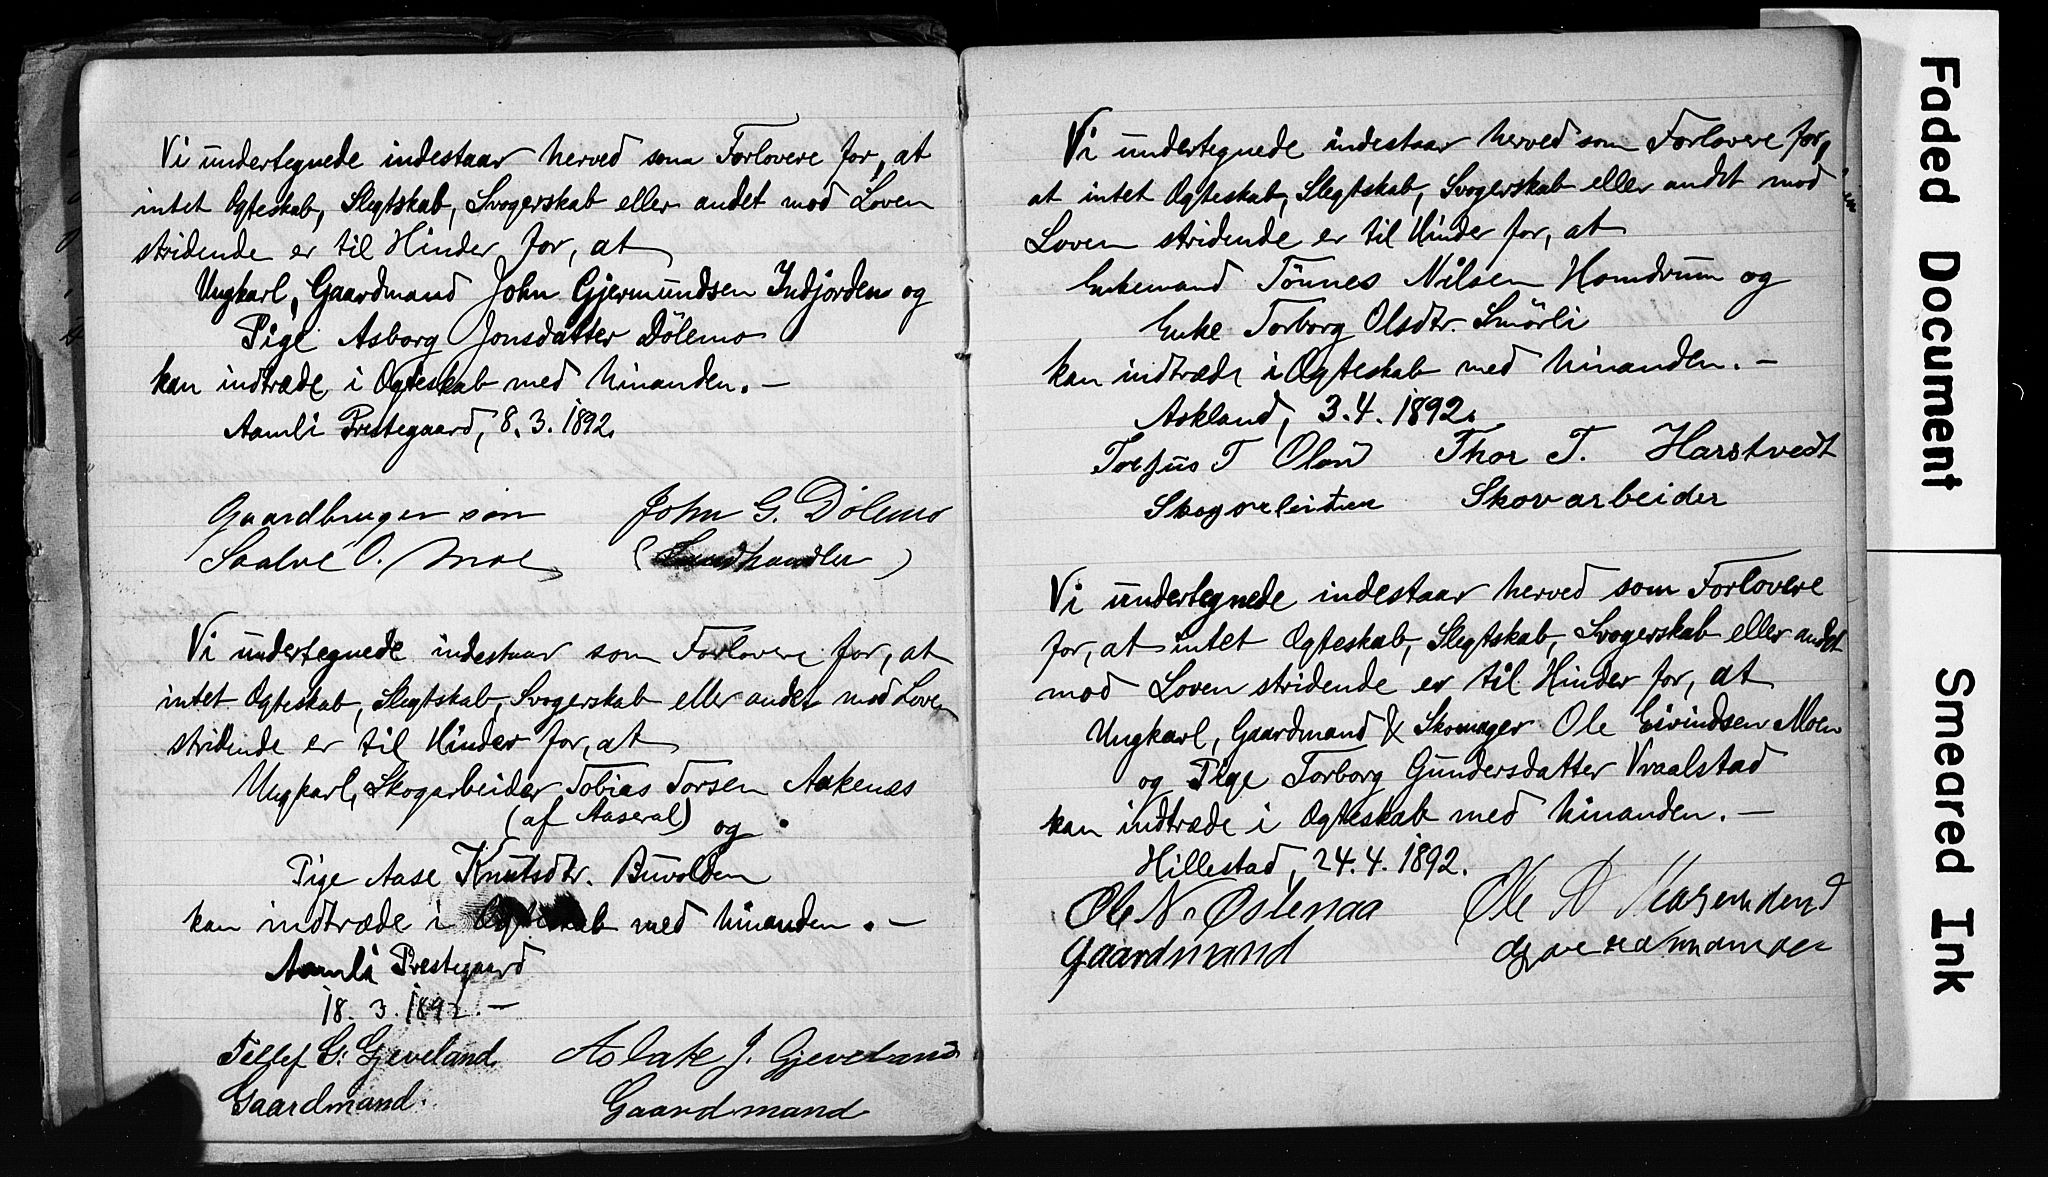 Vi undertegnede indestaar herved som Forlovere for, at
intet Ægteskab, Slegtskab, Svogerskab eller andet mod Loven
stridende er til Hinder for, at
Ungkarl, Gaardmand John Gjermundsen Indjorden og
Pige Asborg Jonsdatter Dölemo
kan indtræde i Ægteskab med hinanden. —
Aamli Prestegaard, 8.3.1892.
Gaardbruger søn John G. Dölemo
Saalve O. Moe (Landhandler)
Vi undertegnede indestaar som Forlovere for, at
intet Ægteskab, Slegtskab, Svogerskab eller andet mod Loven
stridende er til Hinder for, at
Ungkarl, Skogarbeider Tobias Torsen Aakenæs
(af Aaseral) og
Pige Aase Knutsdtr. Buvolden
kan indtræde i Ægteskab med hinanden. —
Aamli Prestegaard
18.3.1892. —
Tellef G. Gjeveland Aslak J. Gjeveland
Gaardmand. Gaardmand
Vi undertegnede indestaar herved som Forlovere for,
at intet Ægteskab, Slegtskab, Svogerskab eller andet mod
Loven stridende er til Hinder for, at
Enkemand Tönnes Nilsen Homdrum og
Enke Torborg Olsdtr. Smörli
kan indtræde i Ægteskab med hinanden. —
Askland, 3.4.1892.
T Thor T. Harstvedt
Skovarbeider
Vi undertegnede indestaar herved som Forlovere
for, at intet Ægteskab, Slegtskab, Svogerskab eller andet
mod Loven stridende er til Hinder for, at
Ungkarl, Gaardmand & Skomager Ole Eivindsen Moen
og Pige Torborg Gundersdatter Vraalstad
kan indtræde i Ægteskab med hinanden. —
Hillestad, 24.4.1892.
Ole N. Østenaa Ole
Gaardmand
Faded Document
Smeared Ink